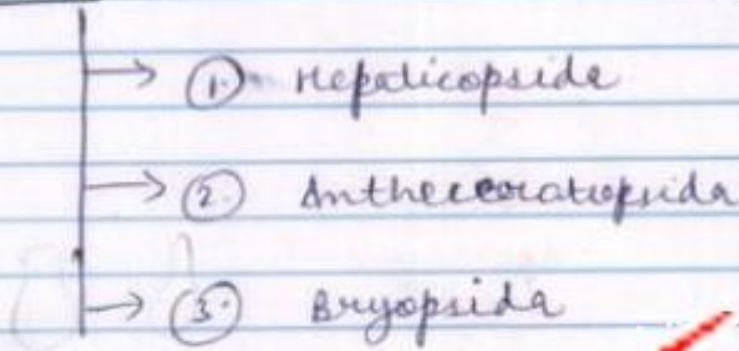 → ① Hepaticopsida
→ ② Anthocerotopsida
→ ③ Bryopsida